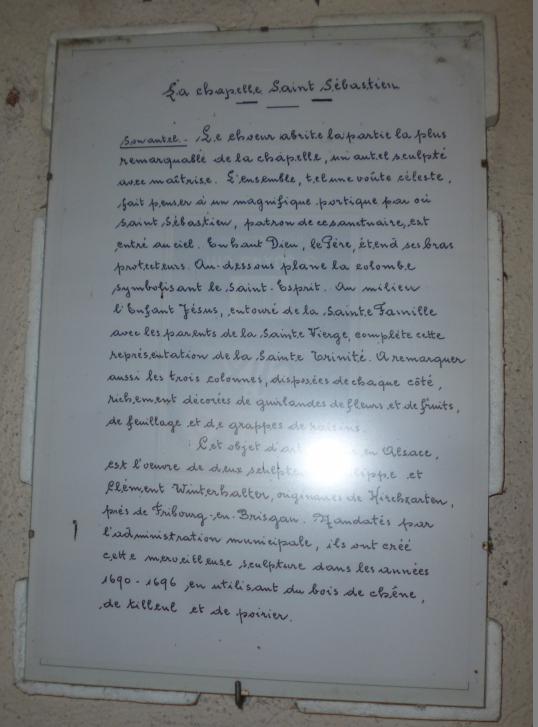 La chapelle Saint Sébastien
Son autel.- Le choeur abrite la partie la plus
remarquable de la chapelle, un autel sculpté
avec maîtrise. L'ensemble, tel une voûte céleste,
fait penser à un magnifique portique par où
Saint Sébastien, patron de ce sanctuaire, est
entré au ciel. En haut Dieu, le Père, étend ses bras
protecteurs. Au-dessous plane la colombe
symbolisant le Saint-Esprit. Au milieu
l'Enfant Jésus, entouré de la Sainte Famille
avec les parents de la Sainte Vierge, complète cette
représentation de la Sainte Trinité. A remarquer
aussi les trois colonnes, disposées de chaque côté,
richement décorées de guirlandes de fleurs et de fruits,
de feuillage et de grappes de raisins.
Cet objet d'art en Alsace,
est l'oeuvre de deux et
Clément Winterhalter, originaires de Kirchzarten,
près de Fribourg-en-Brisgau. Mandatés par
l'administration municipale, ils ont créé
cette merveilleuse sculpture dans les années
1690 - 1696 en utilisant du bois de chêne,
de tilleul et de poirier.